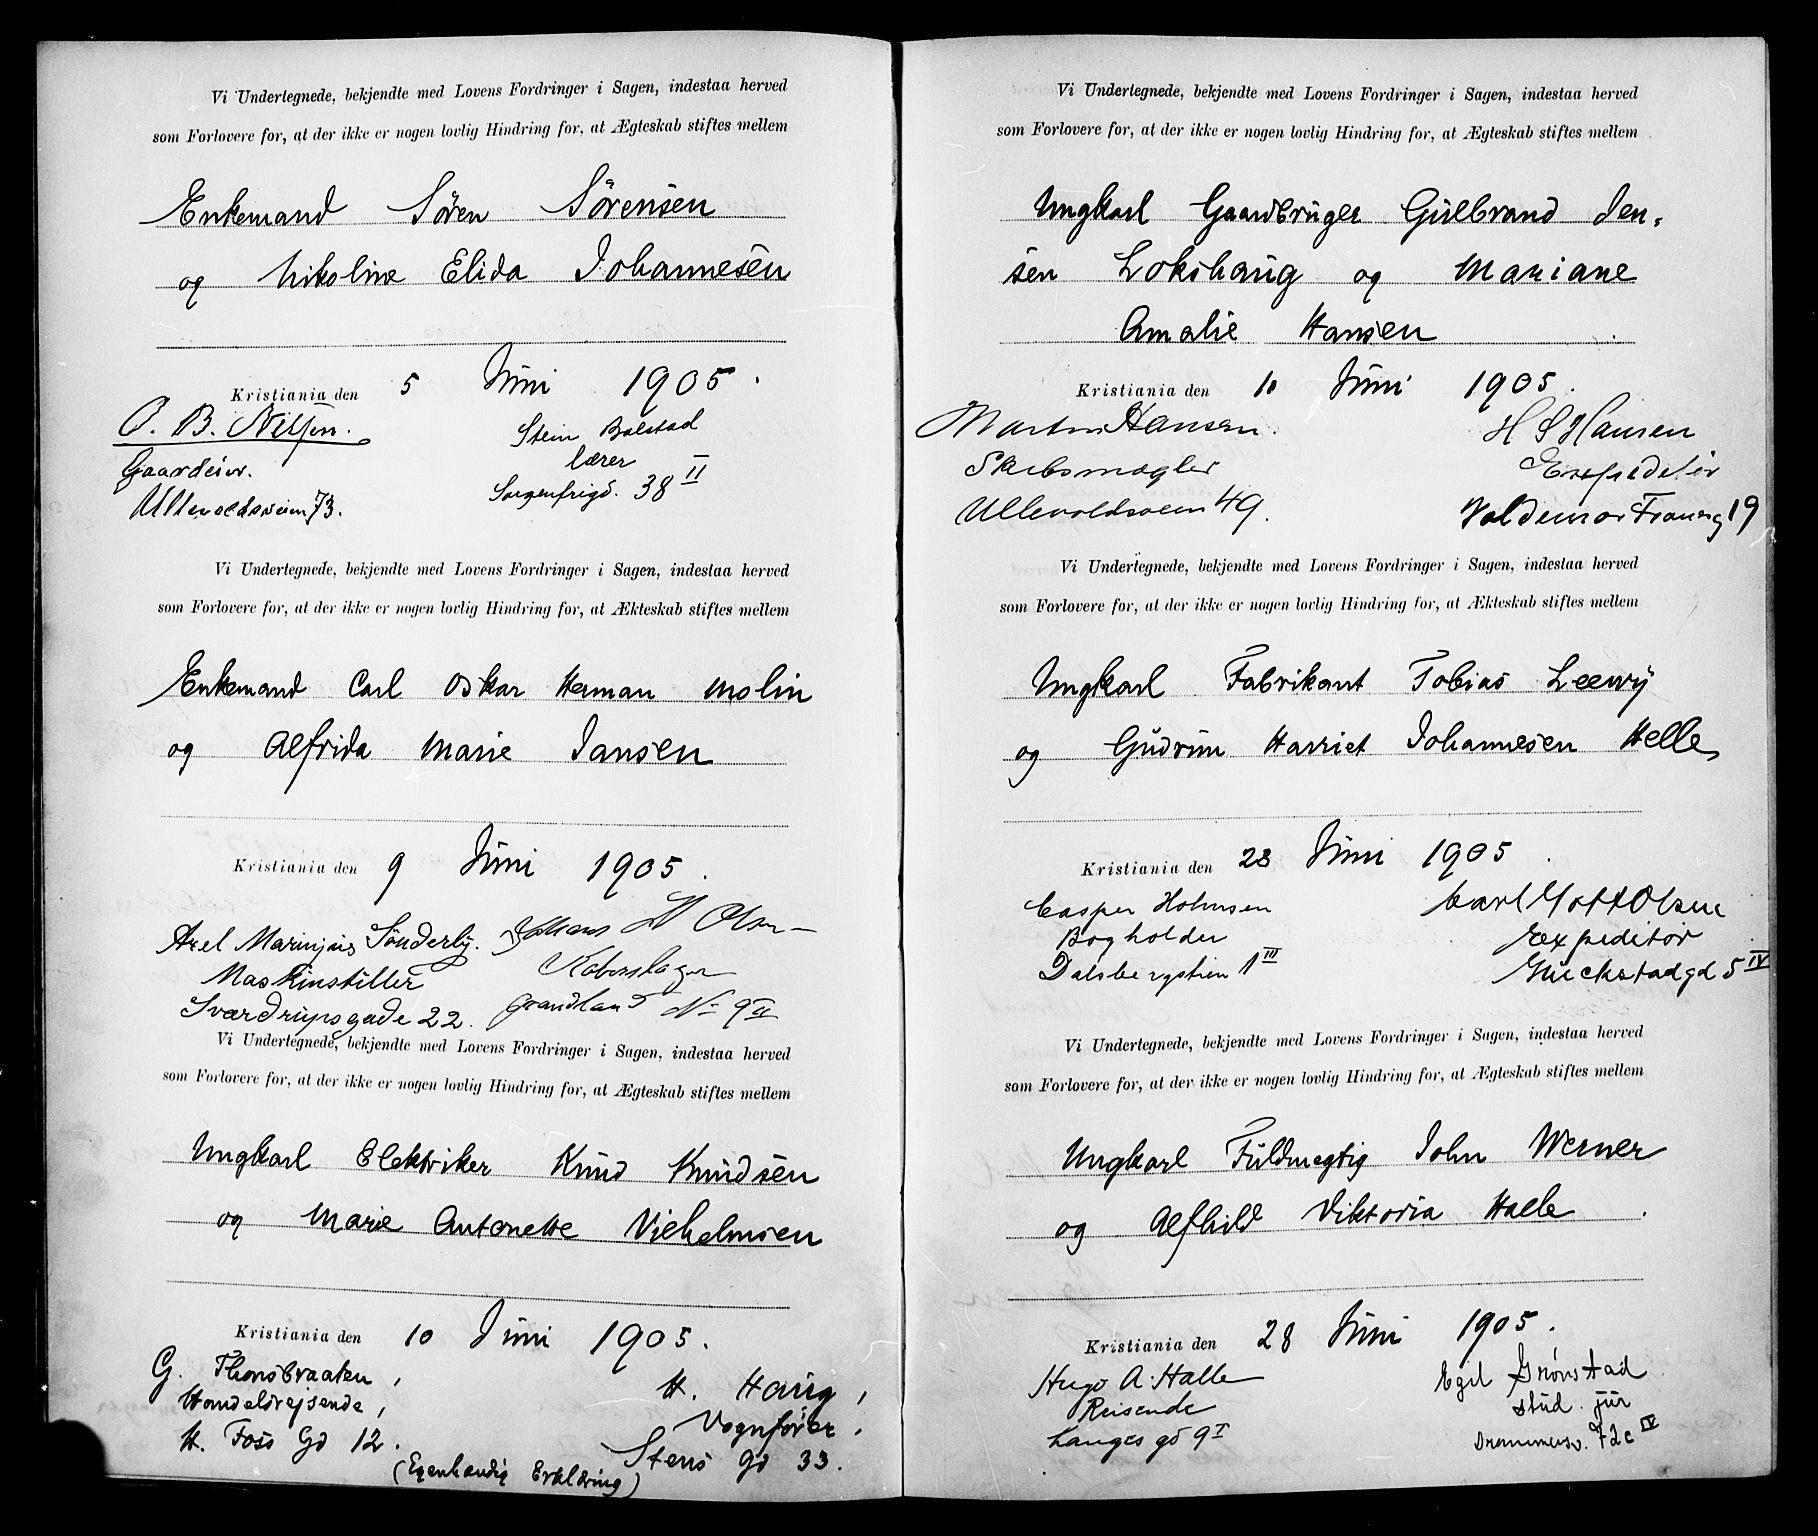 Vi Undertegnede, bekjendte med Lovens Fordringer i Sagen, indestaa herved
som Forlovere for, at der ikke er nogen lovlig Hindring for, at Ægteskab stiftes mellem
Enkemand Sören Sörensen
og Nikoline Elida Johannesen
Kristiania den 5 Juni 1905.
O. B. Nilsen.
Gaardeier.
Ullevoldsveien 73.
Stein Bolstad
lærer
Sorgenfrigd. 38 II
Vi Undertegnede, bekjendte med Lovens Fordringer i Sagen, indestaa herved
som Forlovere for, at der ikke er nogen lovlig Hindring for, at Ækteskab stiftes mellem
Enkemand Carl Oskar Herman Molin
og Alfrida Marie Jansen
Kristiania den 9 Juni 1905.
Axel Marinius Sönderby.
Maskinstiller
Sværdrupsgade 22.
Johans H Olsen
No 9 II
Vi Undertegnede, bekjendte med Lovens Fordringer i Sagen, indestaa herved
som Forlovere for, at der ikke er nogen lovlig Hindring for, at Ægteskab stiftes mellem
Ungkarl Elektriker Knud Knudsen
og Marie Antonette Vilhelmsen
Kristiania den 10 Juni 1905.
G. Thonsbraaten,
Handelsrejsende,
H. Foss Gd 12.
H. Haug,
Vognfører,
Stens Gd 33.
(Egenhændig Erklæring)
Vi Undertegnede, bekjendte med Lovens Fordringer i Sagen, indestaa herved
som Forlovere for, at der ikke er nogen lovlig Hindring for, at Ægteskab stiftes mellem
Ungkarl Gaardbruger Gulbrand Jen-
sen Lokshaug og Mariane
Amalie Hansen
Kristiania den 10 Juni 1905.
Martin Hansen.
Skibsmægler
Ullevoldsveien 49.
H S Hansen
Expeditör
Valdemar Thranesg 19
Vi Undertegnede, bekjendte med Lovens Fordringer i Sagen, indestaa herved
som Forlovere for, at der ikke er nogen lovlig Hindring for, at Ækteskab stiftes mellem
Ungkarl Fabrikant Tobias Leewy
og Gudrun Harriet Johannesen Helle
Kristiania den 28 Juni 1905.
Casper Holmsen
Bogholder
Dalsbergstien 1 III
Carl Gott Olsen
Expeditör
Gluckstadgd 5 IV
Vi Undertegnede, bekjendte med Lovens Fordringer i Sagen, indestaa herved
som Forlovere for, at der ikke er nogen lovlig Hindring for, at Ægteskab stiftes mellem
Ungkarl Fuldmegtig John Werner
og Alfhild Viktoria Halle
Kristiania den 28 Juni 1905.
Hugo A. Halle
Reisende
Langes gd 9 I
Egil Grönstad
stud. jur
Drammensv. 72c IV